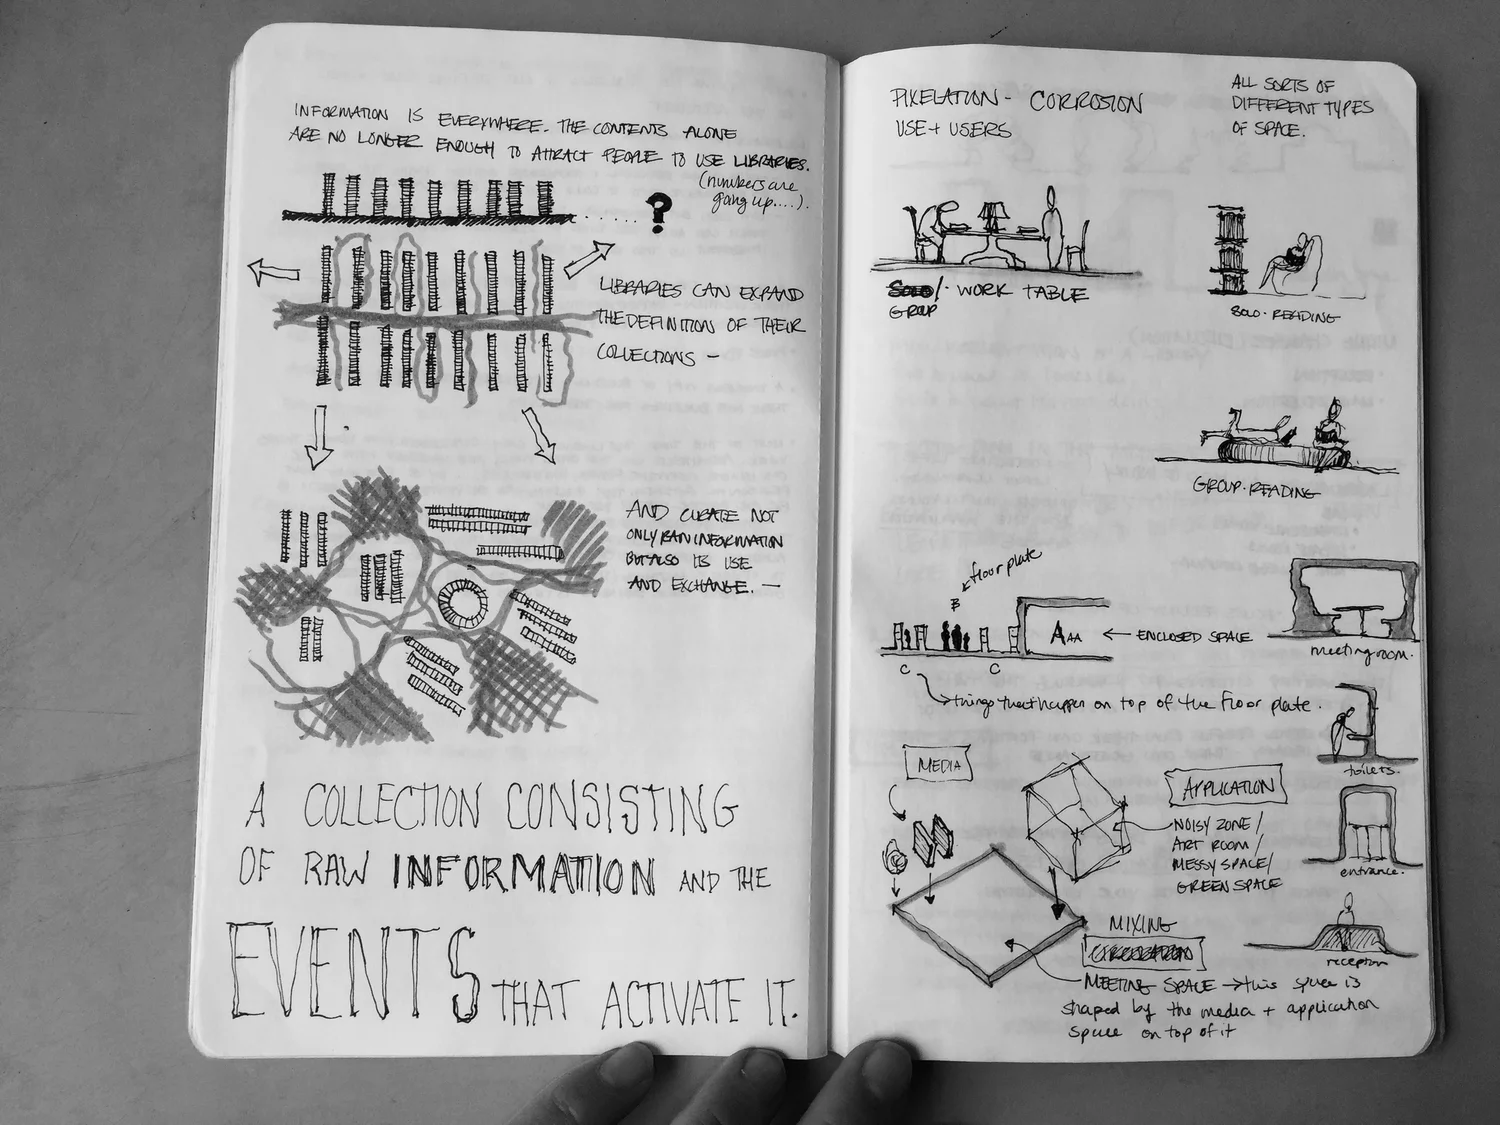 INFORMATION IS EVERYWHERE. THE CONTENTS ALONE
ARE NO LONGER ENOUGH TO ATTRACT PEOPLE TO USE LIBRARIES.
(numbers are
going up....).
?
LIBRARIES CAN EXPAND
THE DEFINITION OF THEIR
COLLECTIONS —
AND CURATE NOT
ONLY RAW INFORMATION
BUT ALSO ITS USE
AND EXCHANGE. —
A COLLECTION CONSISTING
OF RAW INFORMATION AND THE
EVENTS THAT ACTIVATE IT.
PIXELATION - CORROSION
USE + USERS
ALL SORTS OF
DIFFERENT TYPES
OF SPACE.
SOLO/· WORK TABLE
GROUP
SOLO · READING
GROUP · READING
floor plate
B
AAA
← ENCLOSED SPACE
C
C
things that happen on top of the floor plate.
meeting room.
toilets.
entrance.
reception
MEDIA
APPLICATION
NOISY ZONE/
ART ROOM/
MESSY SPACE/
GREEN SPACE
MIXING
MEETING SPACE → this space is
shaped by the media + application
space on top of it